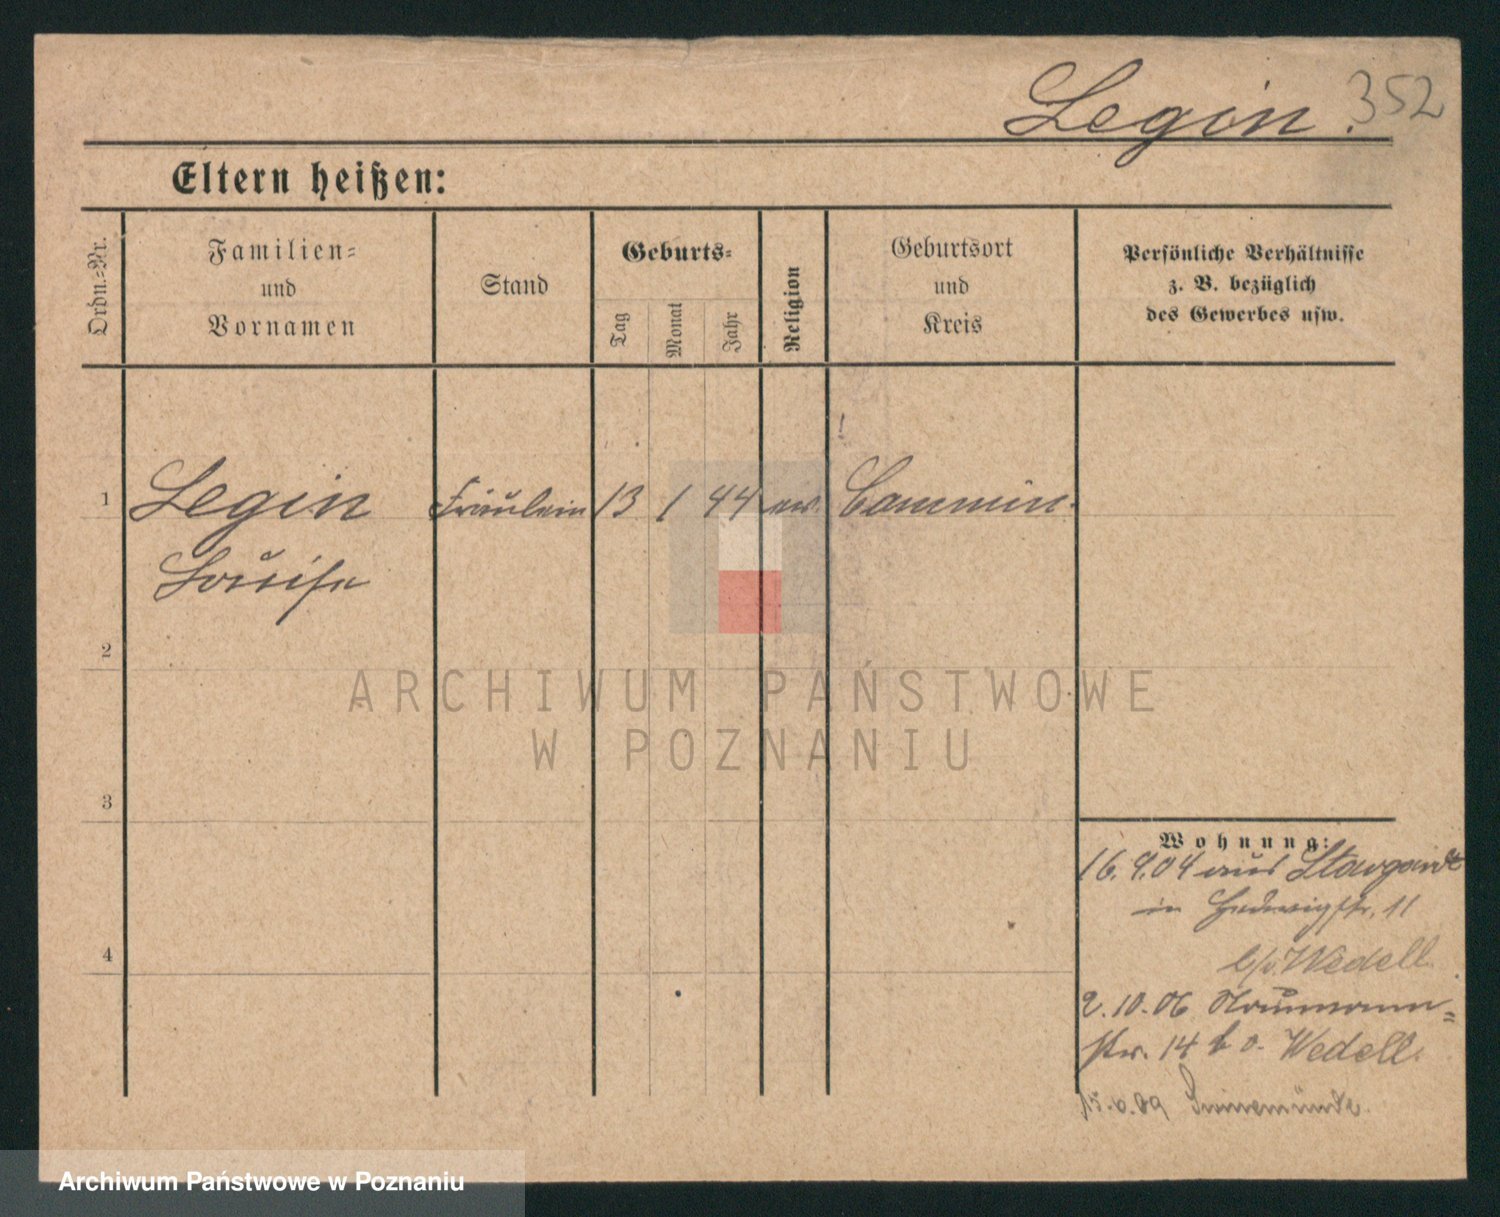 Legin. 352
Eltern heißen:
Ordn.-Nr.
Familien-
und
Vornamen
Stand
Geburts-
Tag
Monat
Jahr
Religion
Geburtsort
und
Kreis
Persönliche Verhältnisse
z. B. bezüglich
des Gewerbes usw.
1 Legin Fräulein 13 1 44 ev. Cammin.
Louise
2
3
4
Wohnung:
16. 9. 04 aus Stargardt
in Hedwigstr. 11
b/v. Wedell.
2. 10. 06 Naumann=
str. 14 b v. Wedell.
15. 6. 09 Swinemünde.
ARCHIWUM PAŃSTWOWE
W POZNANIU
Archiwum Państwowe w Poznaniu